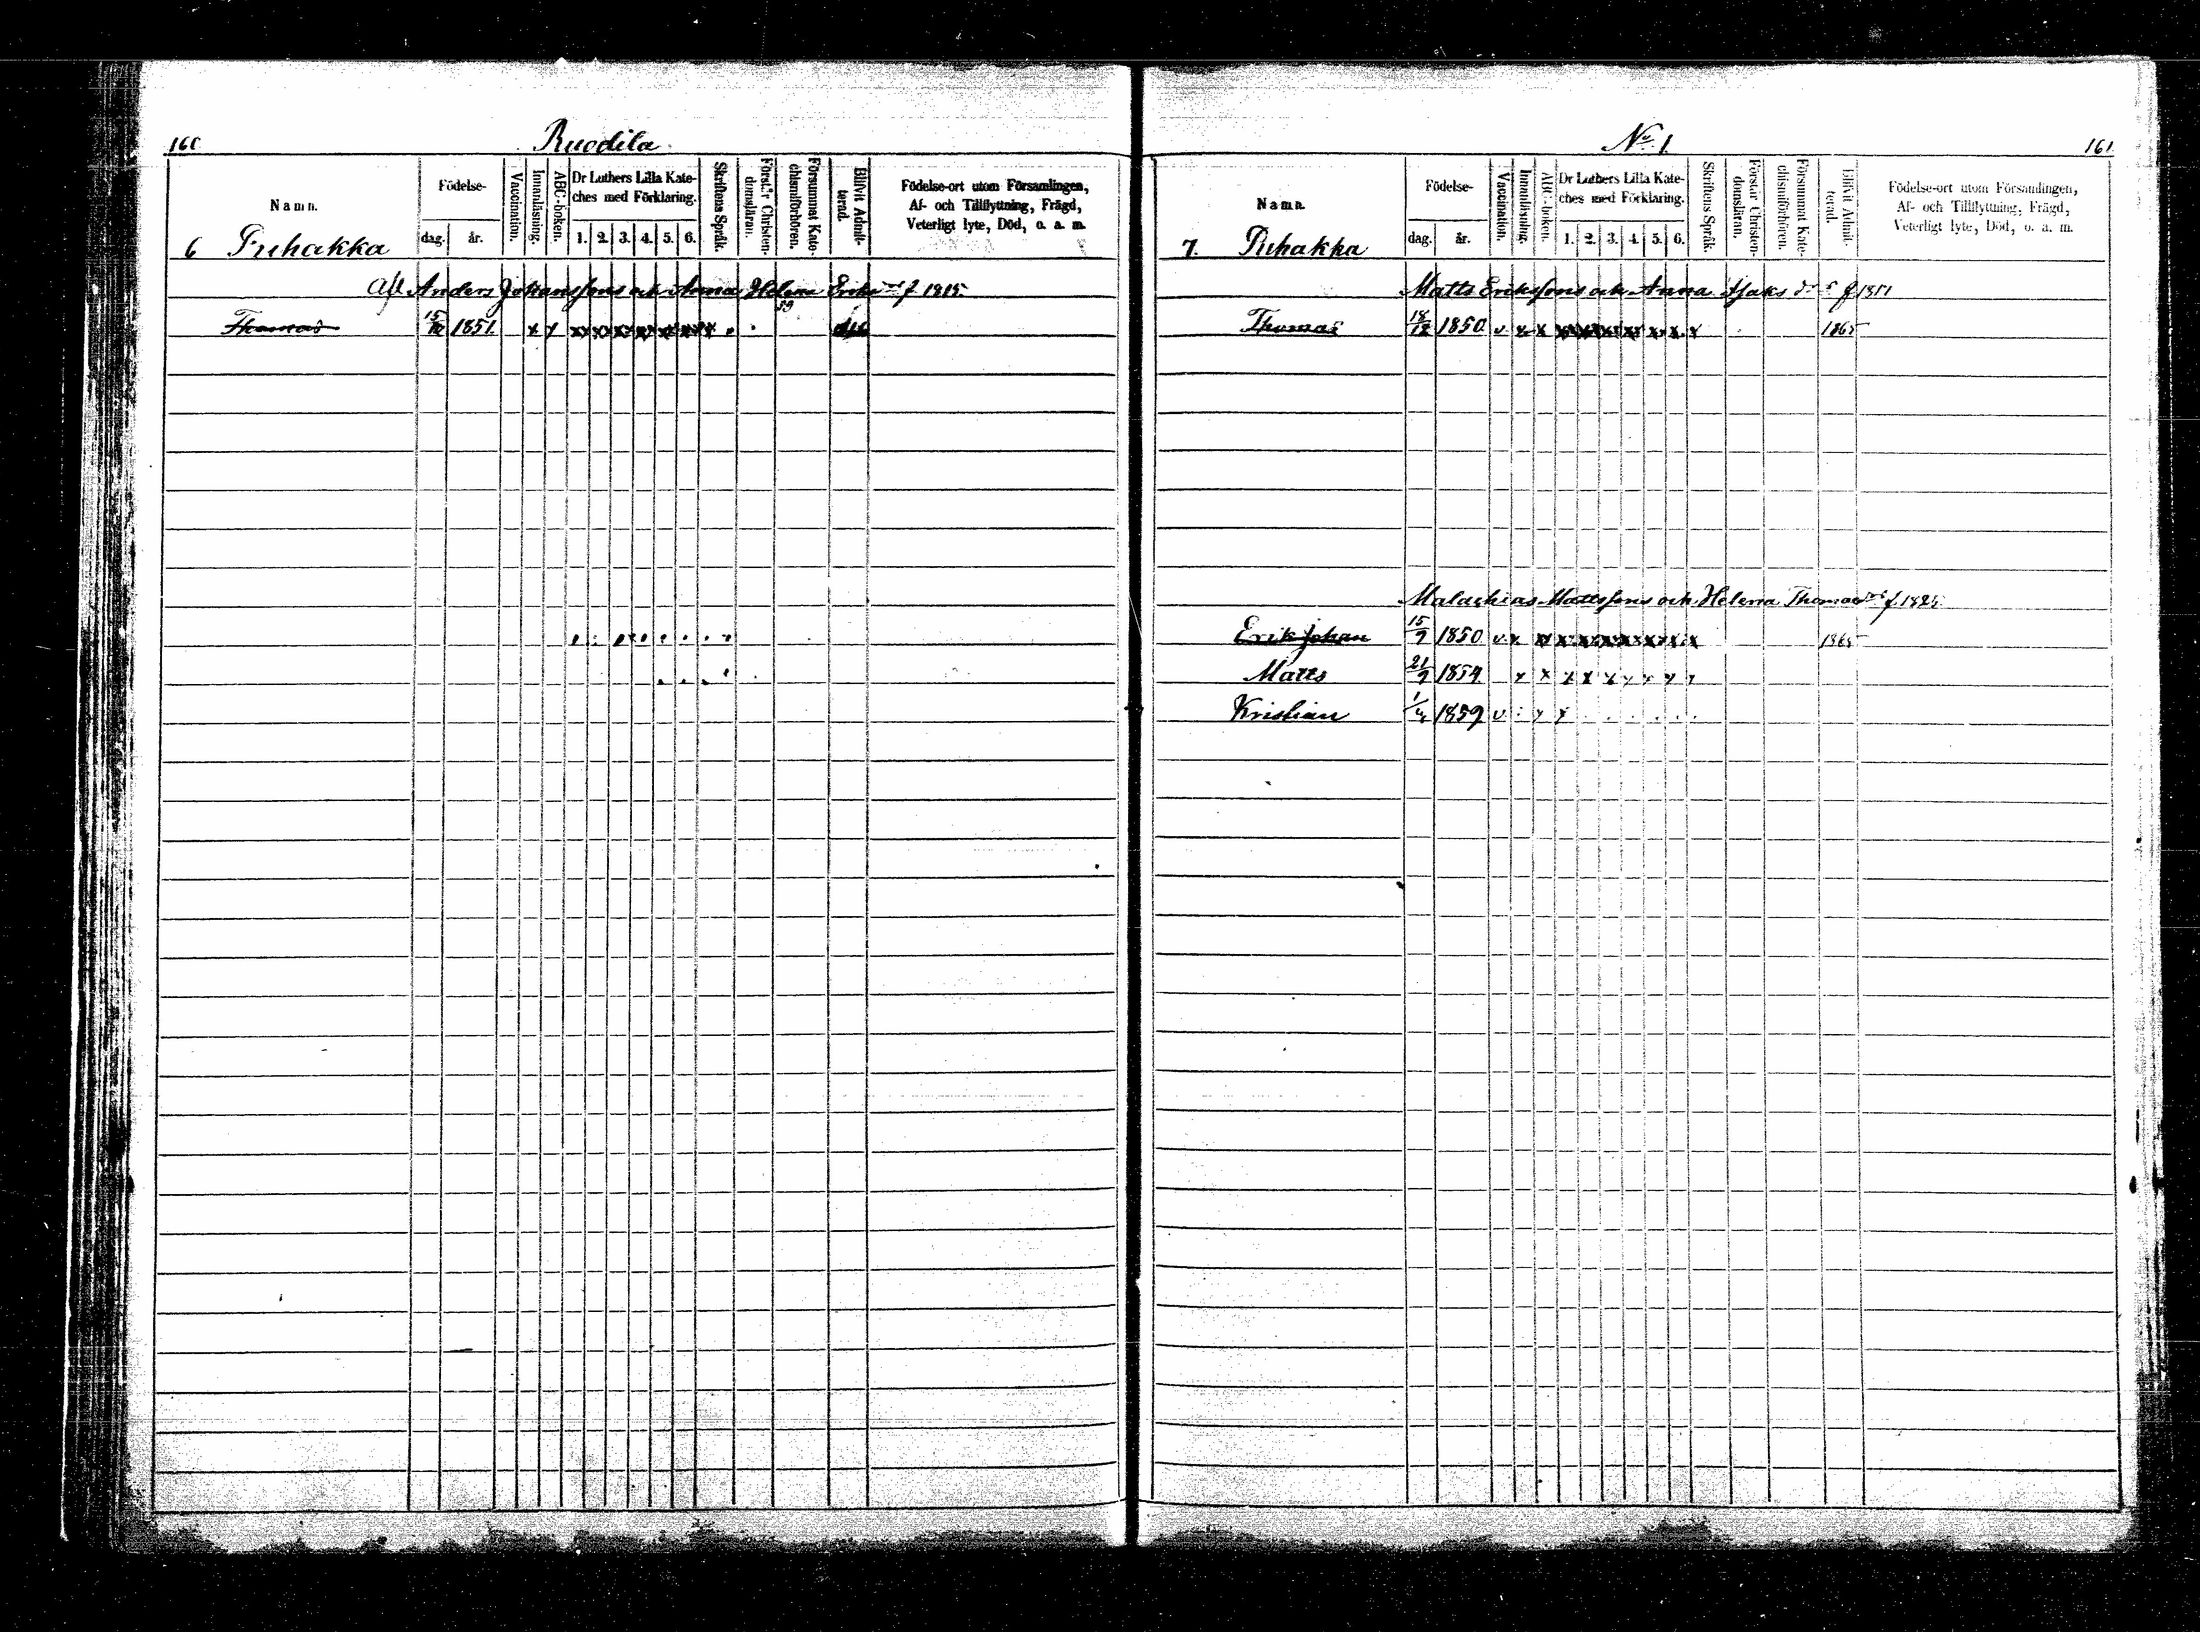 160 Ruodila
Namn. Födelse- dag. år. Vaccination. Innanläsning. ABC-boken. Dr Luthers Lilla Kateches med Förklaring. 1. 2. 3. 4. 5. 6. Skriftens Språk. Förstår Christendomsläran. Försummat Katechismiförhören. Blifvit Admitterad. Födelse-ort utom Församlingen, Af- och Tillflyttning, Frägd, Veterligt lyte, Död, o. a. m.
6 Puhakka
Afl Anders Johanssons och Anna Helena Eriks f 1815.
59
Thomas 15/12 1851. x x x x x x x x x
No 1. 161
Namn. Födelse- dag. år. Vaccination. Innanläsning. ABC-boken. Dr Luthers Lilla Kateches med Förklaring. 1. 2. 3. 4. 5. 6. Skriftens Språk. Förstår Christendomsläran. Försummat Katechismiförhören. Blifvit Admitterad. Födelse-ort utom Församlingen, Af- och Tillflyttning, Frägd, Veterligt lyte, Död, o. a. m.
7. Puhakka
Matts Erikssons och Anna Isaks drs f 1811
Thomas 18/12 1850 v x x x x x x x x x 1865
Malachias Mattssons och Helena Thomasdrs f. 1825
Erik Johan 15/9 1850 v x x x x x x x x x 1865
Matts 21/9 1854 x x x x x x x x x
Kristian 1859 v x x